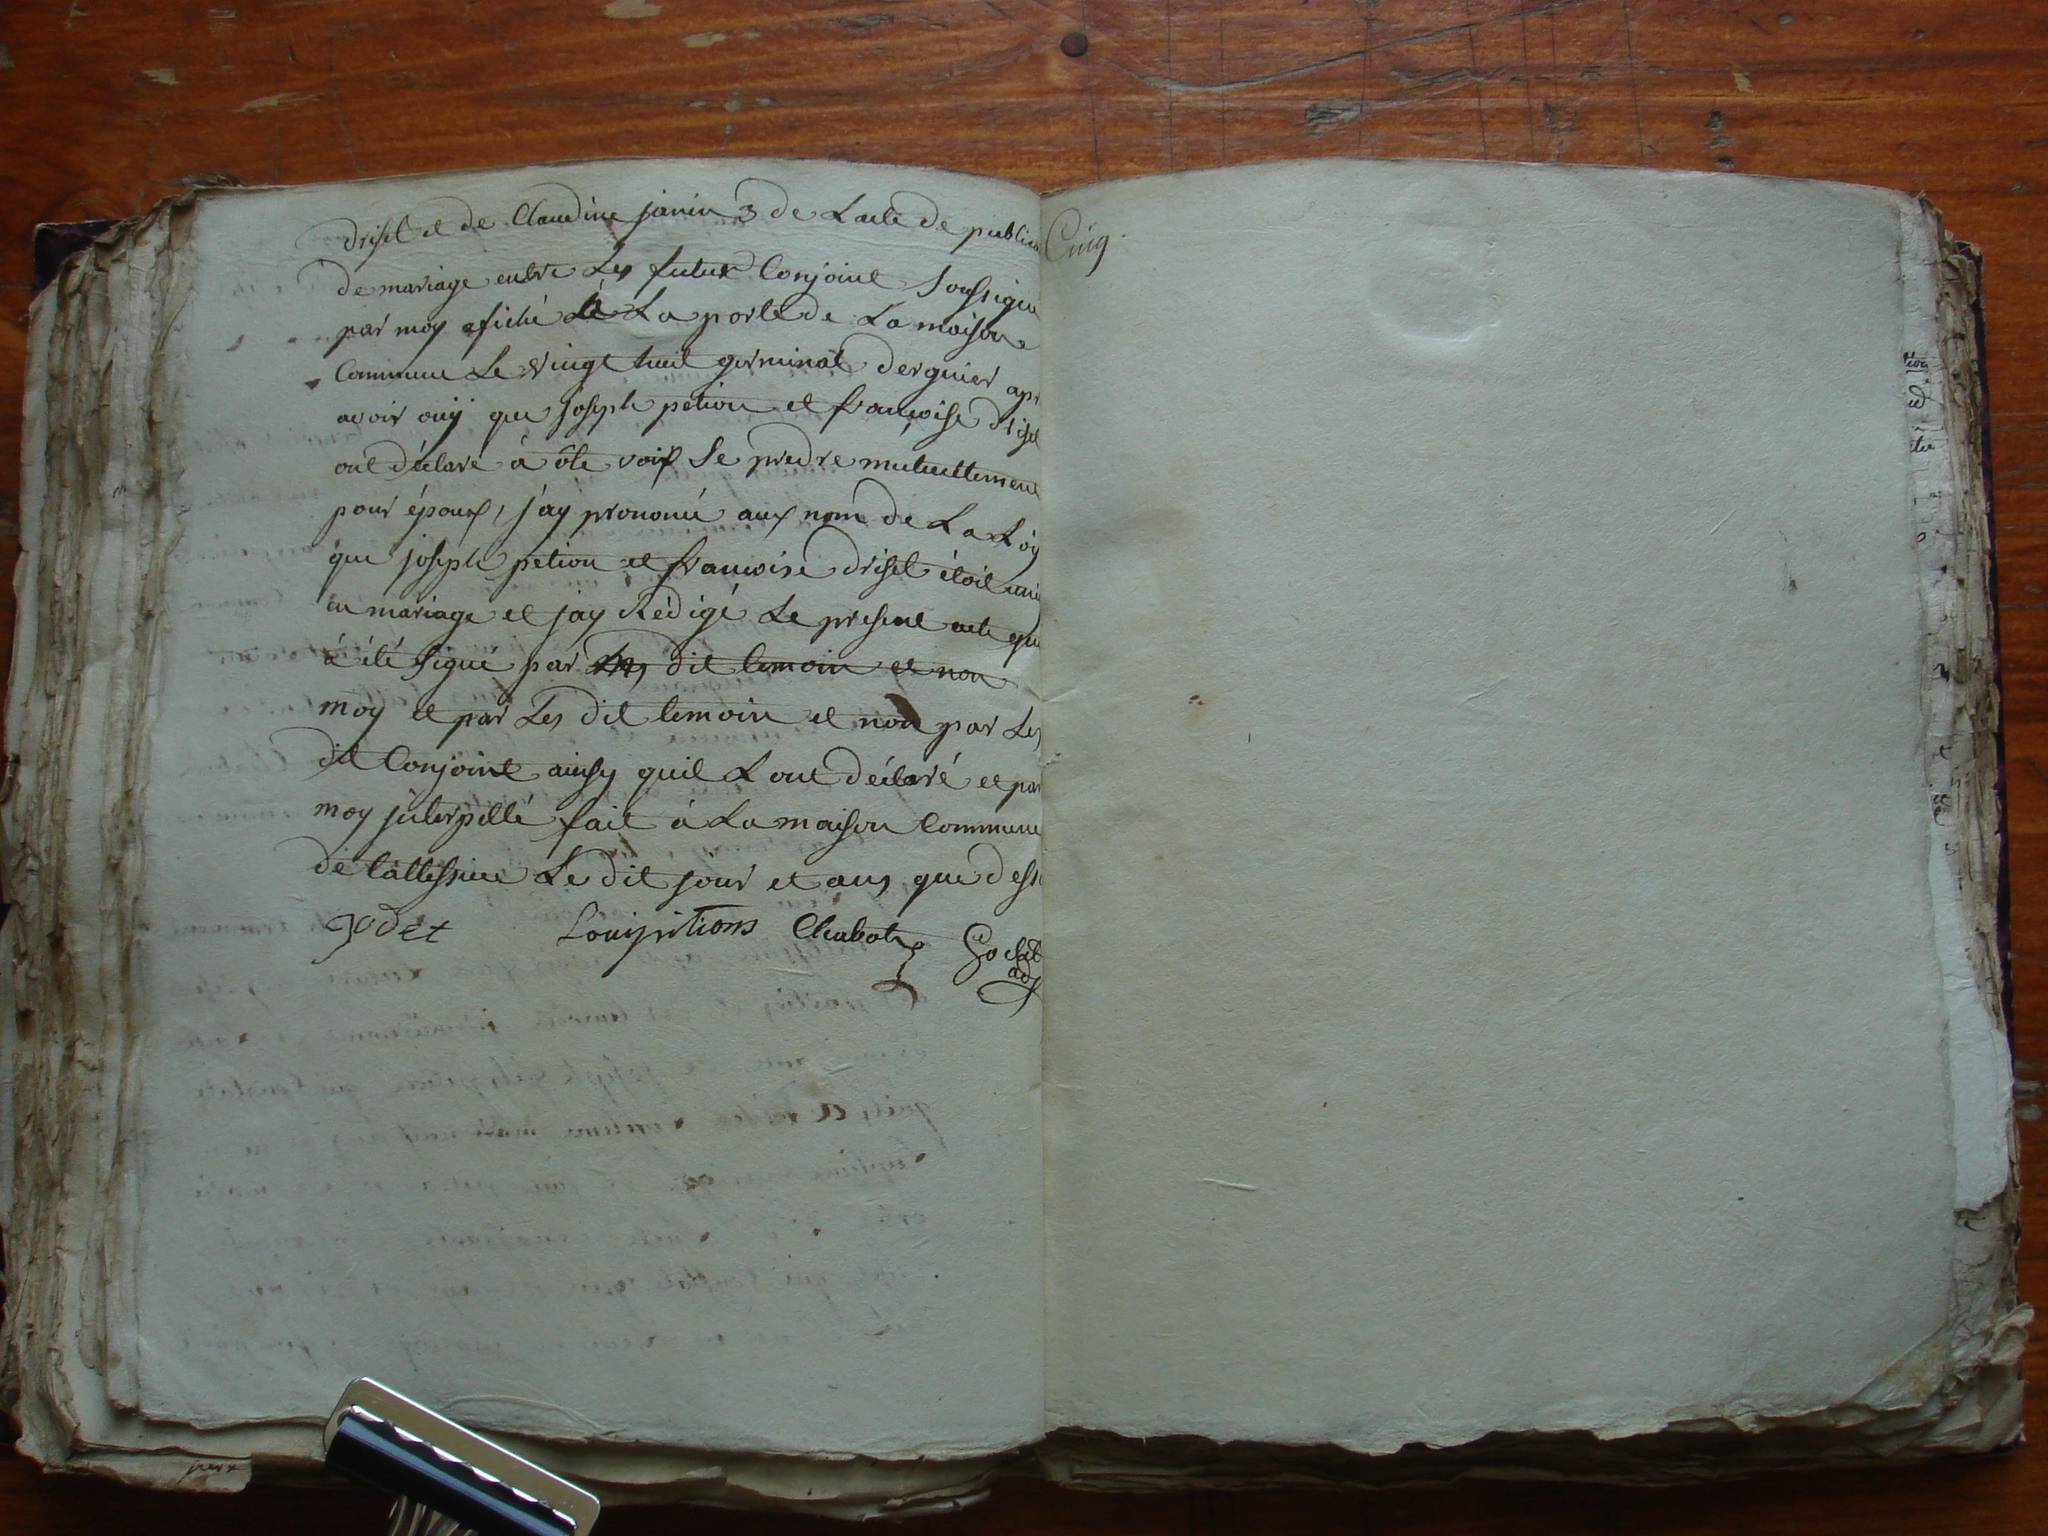 drisel et de Claudine janin 3 de Lacte de publica
de mariage entre Les futur Conjoint Soussigne
par moy afiché à La porte de La maison
Commune Le vingt huit germinal dergnier apr
avoir ouÿ que joseph petion et francoise drisel
ont déclaré à ôte voix Se predre mutuellement
pour époux, j'ay prononcé aux nom de La Loy
que joseph petion et francoise drisel étoit unie
en mariage et jay Rédigé Le present acte qui
à été Signé par Les dit temoin et non
moy et par Les dit temoin et non par Les
dit Conjoint ainsy quil L ont déclaré et par
moy jnterpellé fait à La maison Commune
de Lallessine Le dit jour et ans que dess
Louis petions Chabot
Cinq